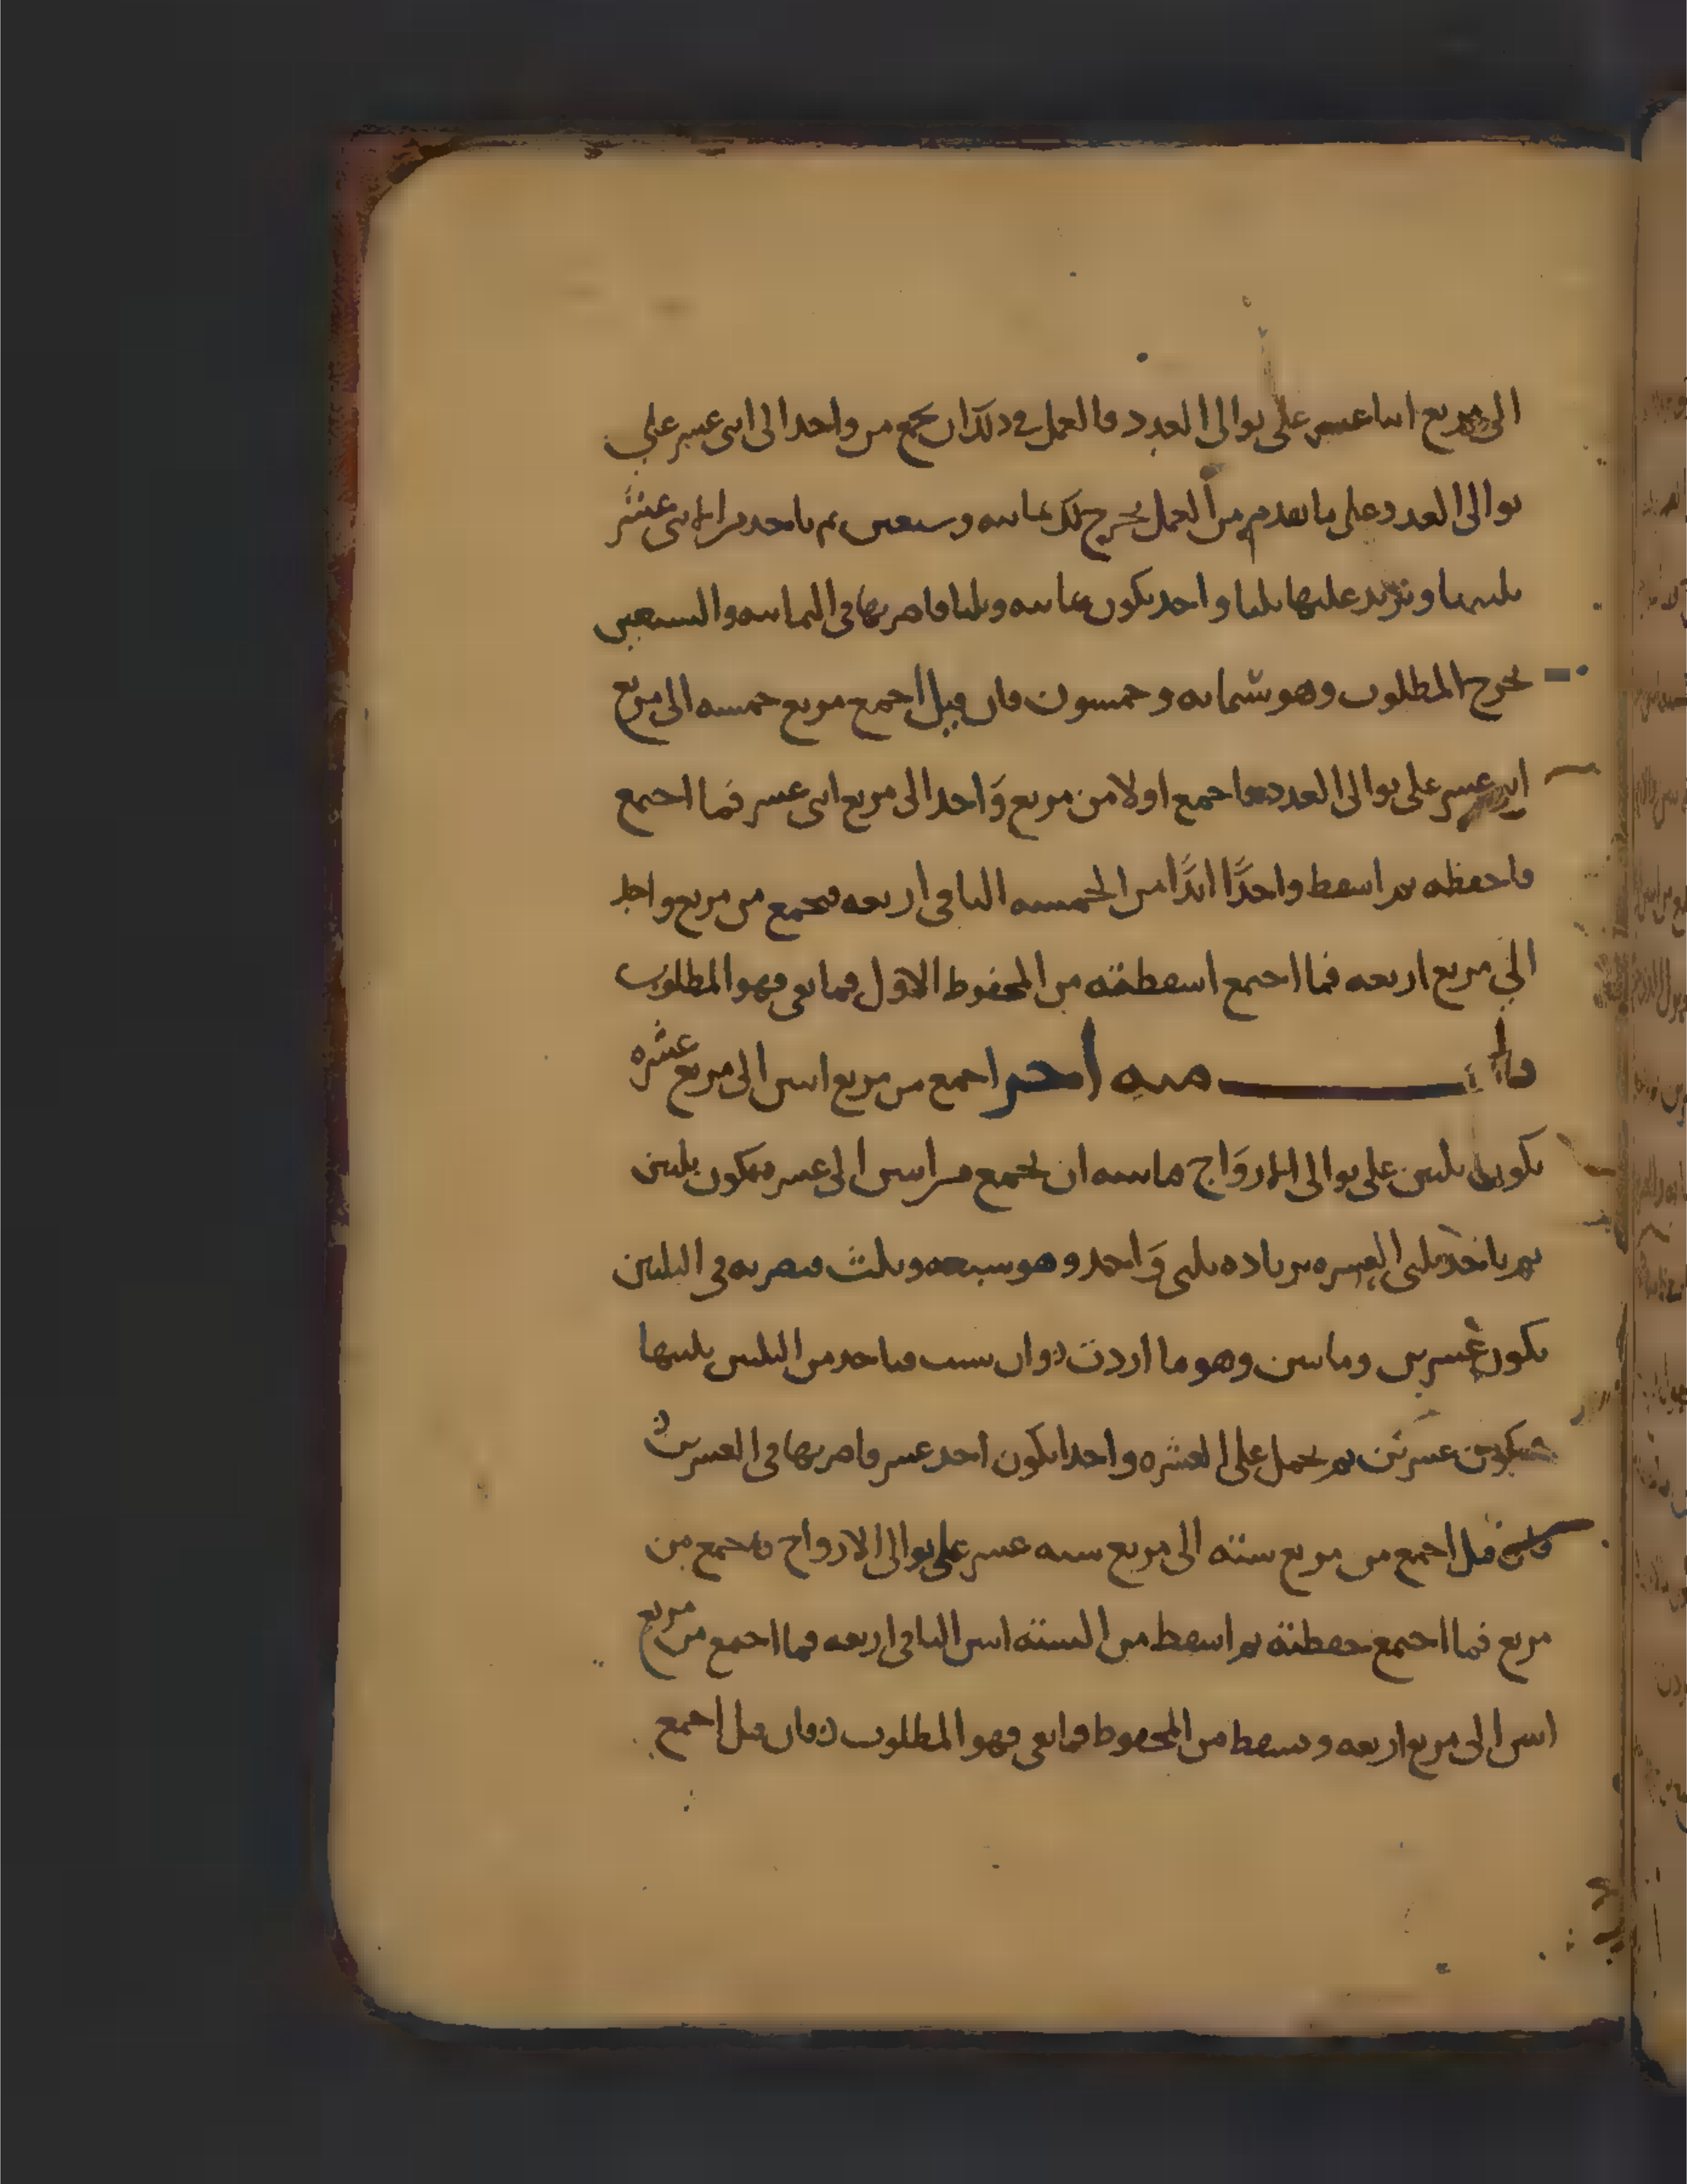 الى مربع اثنا عشر على توالي العدد فالعمل في ذلك ان تجمع من واحد الى اثنى عشر على
توالى العدد على ما تقدم من العمل يخرج لك ثمانيه وسبعين ثم تاخد من الاثنى عشر
ثلثيها وتزيد عليها ثلثا واحد يكون ثمانيه وثلثا فاضربها في الثمانيه والسبعين
يخرج المطلوب وهو ستمائه وخمسون فان قيل اجمع مربع خمسه الى مربع
اثنى عشر على توالى العدد فاجمع اولا من مربع واحد الى مربع اثنى عشر فما اجتمع
فاحفظه ثم اسقط واحدًا ابدًا من الخمسه الباقى اربعه فتجمع من مربع واحد
الى مربع اربعه فما اجتمع اسقطته من المحفوظ الاول فما بقى فهو المطلوب
باب منه اخر اجمع من مربع اثنين الى مربع عشره
على توالى الازواج قياسه ان تجمع من اثنين الى عشر فيكون ثلثين
ثم تاخذ ثلثى العشره بزياده ثلثى واحد وهو سبعه وثلث فتضربه في الثلثين
يكون عشرين ومايتين وهو ما اردت وان شيت فتاخد من الثلثين ثلثيها
فيكون عشرين ثم تحمل على العشره واحدا يكون احد عشر فاضربها في العشرين
فان قيل اجمع من مربع سته الى مربع سته عشر على توالى الازواج فاجمع من
مربع فما اجتمع حفظته ثم اسقط من السته اثنين الباقى اربعه فما اجتمع من مربع
اثنين الى مربع اربعه وتسقط من المحفوظ فما بقى فهو المطلوب فان قيل اجمع